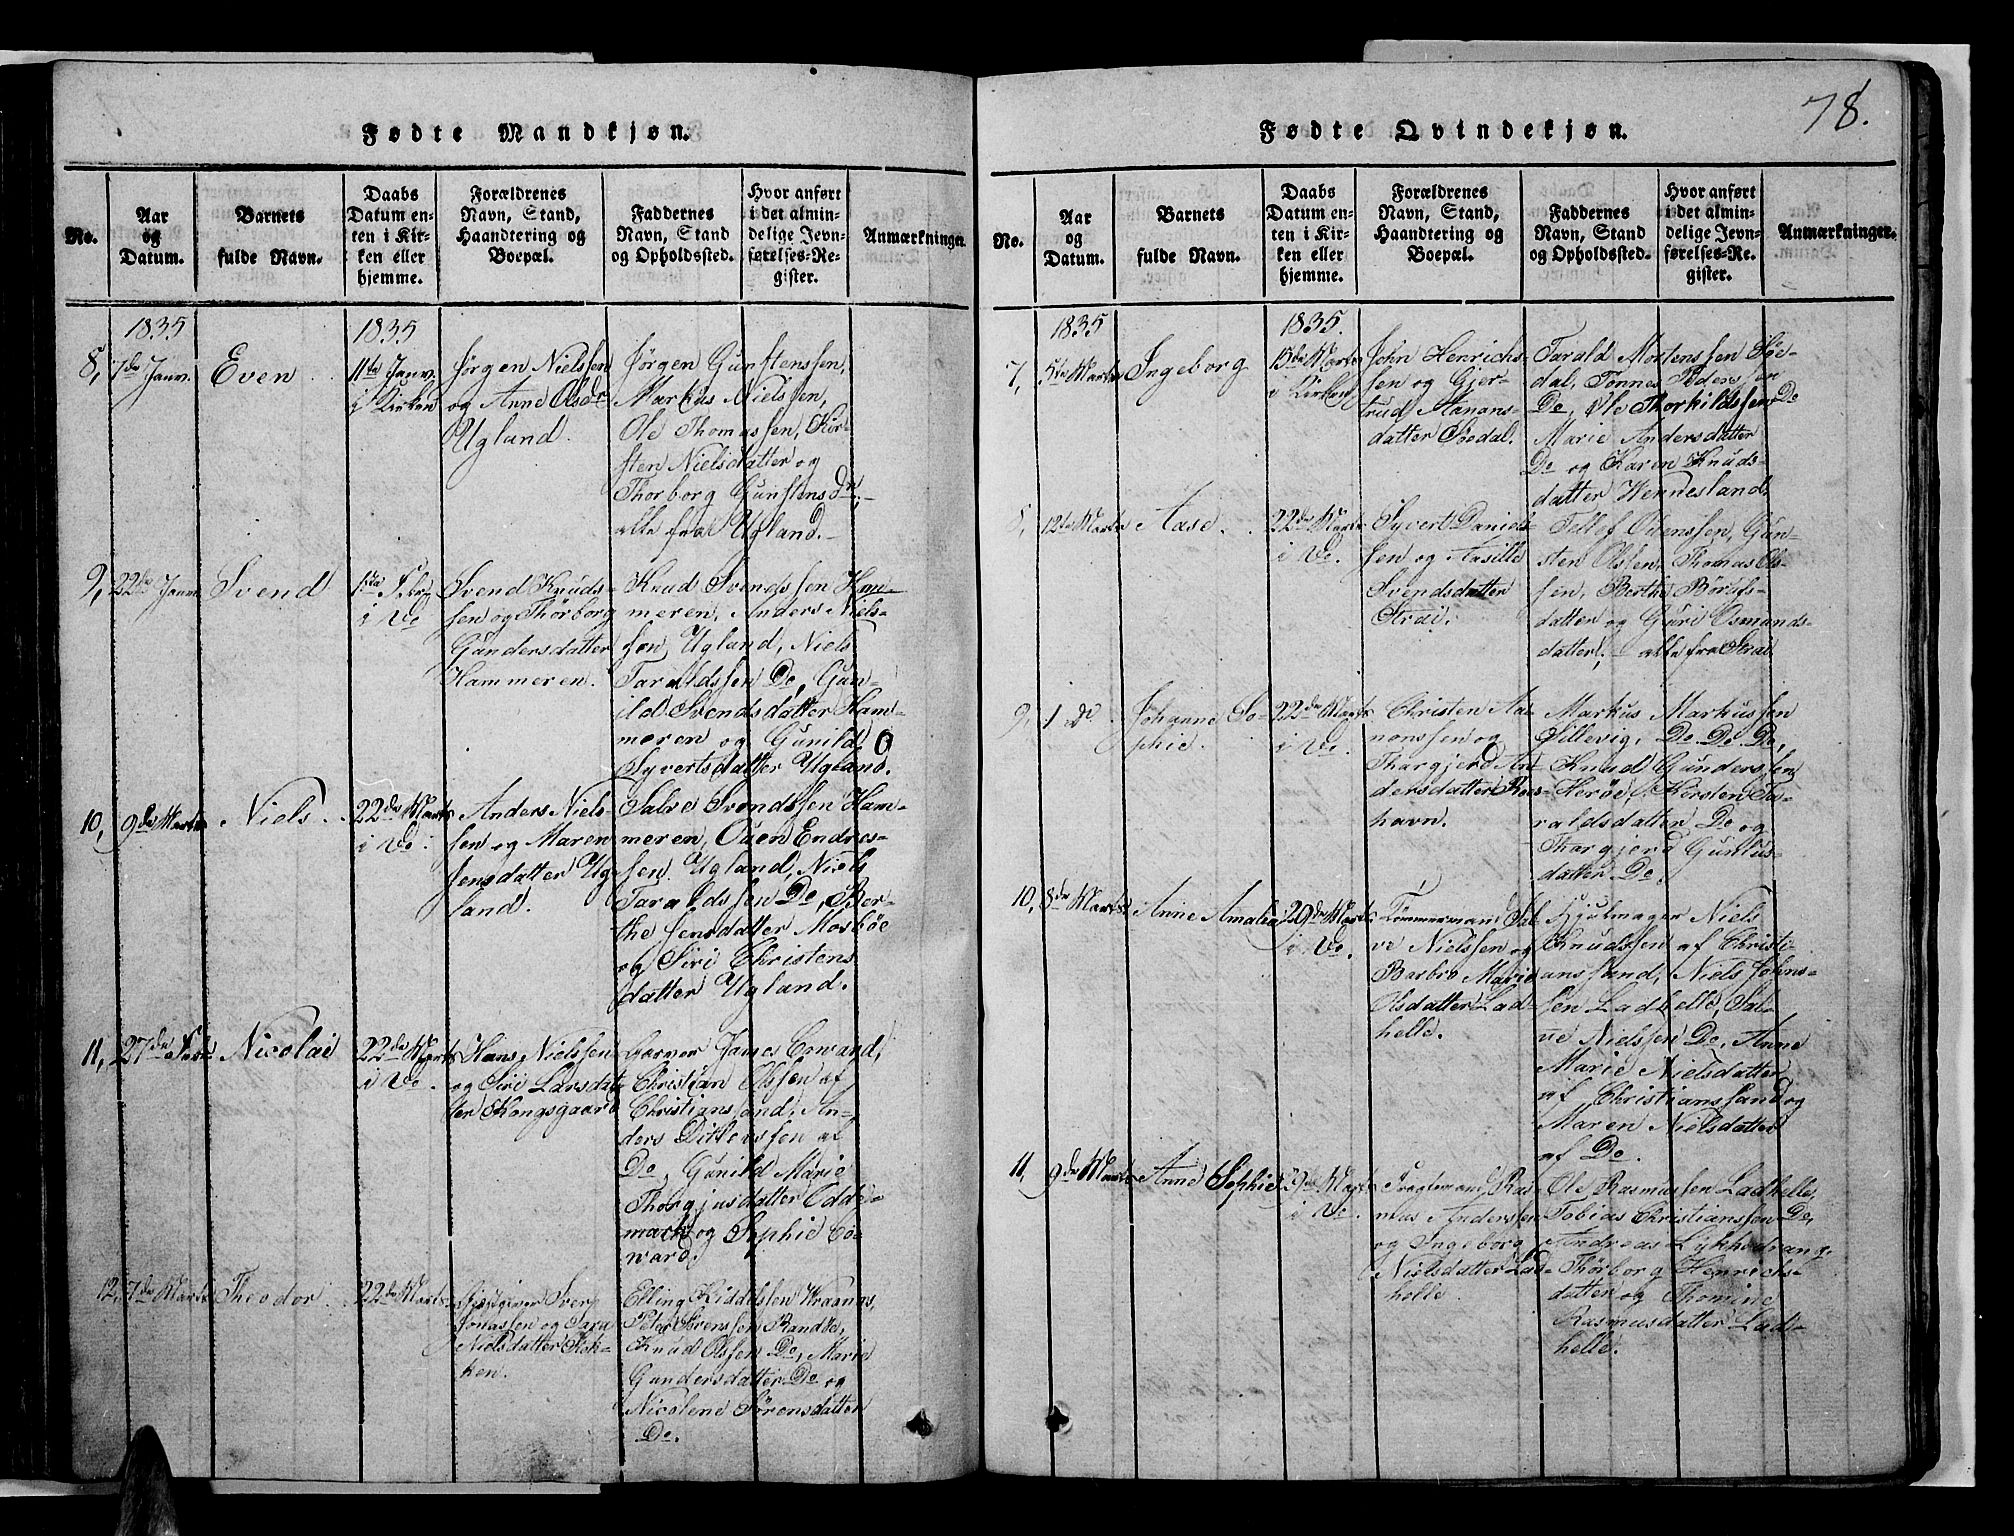 78.
Fødte Mandkjøn.
No.
Aar
og
Datum.
Barnets
fulde Navn.
Daabs
Datum en-
ten i Kir-
ken eller
hjemme.
Forældrenes
Navn, Stand,
Haandtering og
Boepæl.
Faddernes
Navn, Stand
og Opholdssted.
Hvor anført
i det almin-
delige Jevn-
førelses-Re-
gister.
Anmærkninger.
1835
1835
8,
7de Janv.
Even
11te Janv.
i Kirken
Jørgen Nielssen
og Anne Olsdr
Ugland.
Jørgen Gunstenssen,
Markus Nielssen,
Ole Thomassen, Kir-
sten Nielsdatter og
Thorborg Gunstensdr,
alle fra Ugland.
9,
22de Janv
Svend
1ste Febr
i Do
Svend Knuds-
sen og Thorborg
Gundersdatter
Hammeren.
Knud Svendssen Ham-
meren, Anders Niels-
sen Ugland, Niels
Taraldssen Do, Gun-
ild Svendsdatter Ham-
meren og Gunild
Syvertsdatter Ugland.
10,
9de Marts
Niels
22de Marts
i Do
Anders Niels-
sen og Maren
Jensdatter Ug-
land.
Salve Svendssen Ham-
meren, Ouen Endres-
sen Ugland, Niels
Taraldssen Do, Ber-
the Jensdatter Mosbøe
og Siri Christens
datter Ugland.
11,
27de
Nicolai
22de Marts
i Do
Hans Nielssen
og Siri Larsdat-
ter Kongsgaard
Garver James Coward,
Christian Olssen af
Christianssand, An-
ders Ditlevssen af
Do, Gunild Marie
Thorgjusdatter Odder-
mark og Sophie Co-
ward.
12,
7de Marts
Theodor
22de Marts
Sverr
Jonassen og Sara
Nielsdatter Kok-
ken.
Elling
Peter Sørenssen Randøe,
Knud Olssen Do, Marie
Gundersdatter Do og
Nicolene Sørensdatter
Do.
Fødte Qvindekjøn.
No.
Aar
og
Datum.
Barnets
fulde Navn.
Daabs
Datum en-
ten i Kir-
ken eller
hjemme.
Forældrenes
Navn, Stand,
Haandtering og
Boepæl.
Faddernes
Navn, Stand
og Opholdssted.
Hvor anført
i det almin-
delige Jevn-
førelses-Re-
gister.
Anmærkninger.
1835
1835.
7,
5te Marts
Ingeborg
15de Marts
i Kirken
John Henrichs-
sen og Gjer-
trud Aanans-
datter Søedal.
Tarald Mortenssen Søe-
dal, Tønnes Pederssen
Do, Ole Thorkildssen Do
Marie Andersdatter
Do og Karen Knuds-
datter Hennesland.
8,
12te Marts
Aase
22de Marts
i Do.
Syvert Daniels-
sen og Aasille
Svendsdatter
Strai.
Tellef Ouenssen, Gun-
sten Olssen, Thomas Ols-
sen, Berthe
datter og Guri Osmunds-
datter, alle fra Strai
9,
1 Do
Johanne So-
phie.
22de Marts
i Do.
Christen Aa-
nonssen og
Thargjerd An-
dersdatter Ras-
havn.
Markus Markussen
Ollevig, Do Do Do,
Knud Gunderssen
Herøe, Kirsten Ta-
raldsdatter Do og
Thargjerd Gunlus-
datter Do.
10,
8de Marts
Anne Amalia
29de Marts
i Do.
Tømmermand Sal-
ve Nielssen og
Barbro Marie
Olsdatter Lad-
helle.
Hjulmager Niels
Knudssen af Christi-
anssand, Niels Johns-
sen Ladhelle, Sal-
ve Nielssen Do, Anne
Marie Nielsdatter
af Christianssand og
Maren Nielsdatter
af Do.
11,
9de Marts
Anne Sophie
29de Marts
i Do.
Fragtemand Ras-
mus Anderssen
og Ingeborg
Nielsdatter Lad-
helle.
Ole Rasmussen Ladhelle,
Tobias Christianssen Do,
Andreas Lykkedrang,
Thorborg Henrichs-
datter og Thomine
Rasmusdatter Lad-
helle.